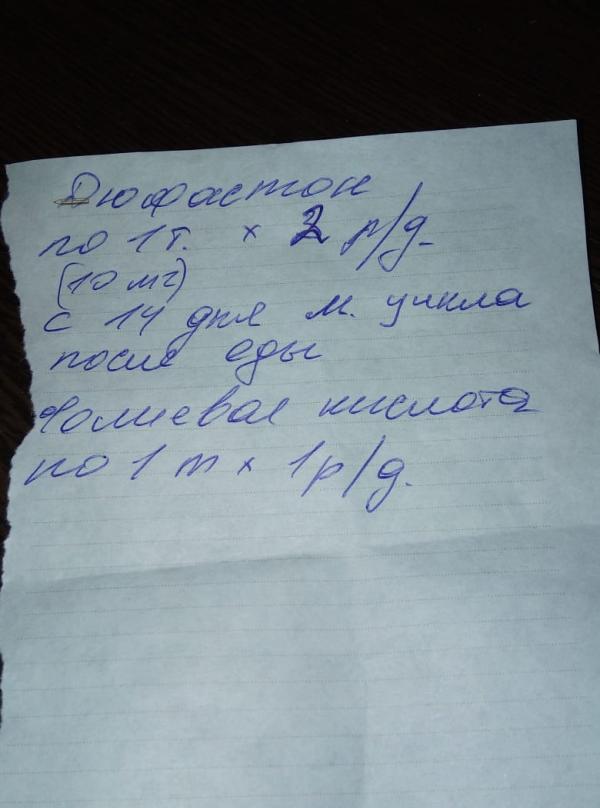 Дюфастон
по 1т. × 2 р/д.
(10 мг)
с 14 дня м. цикла
после еды
Фолиевая кислота
по 1 т × 1р/д.